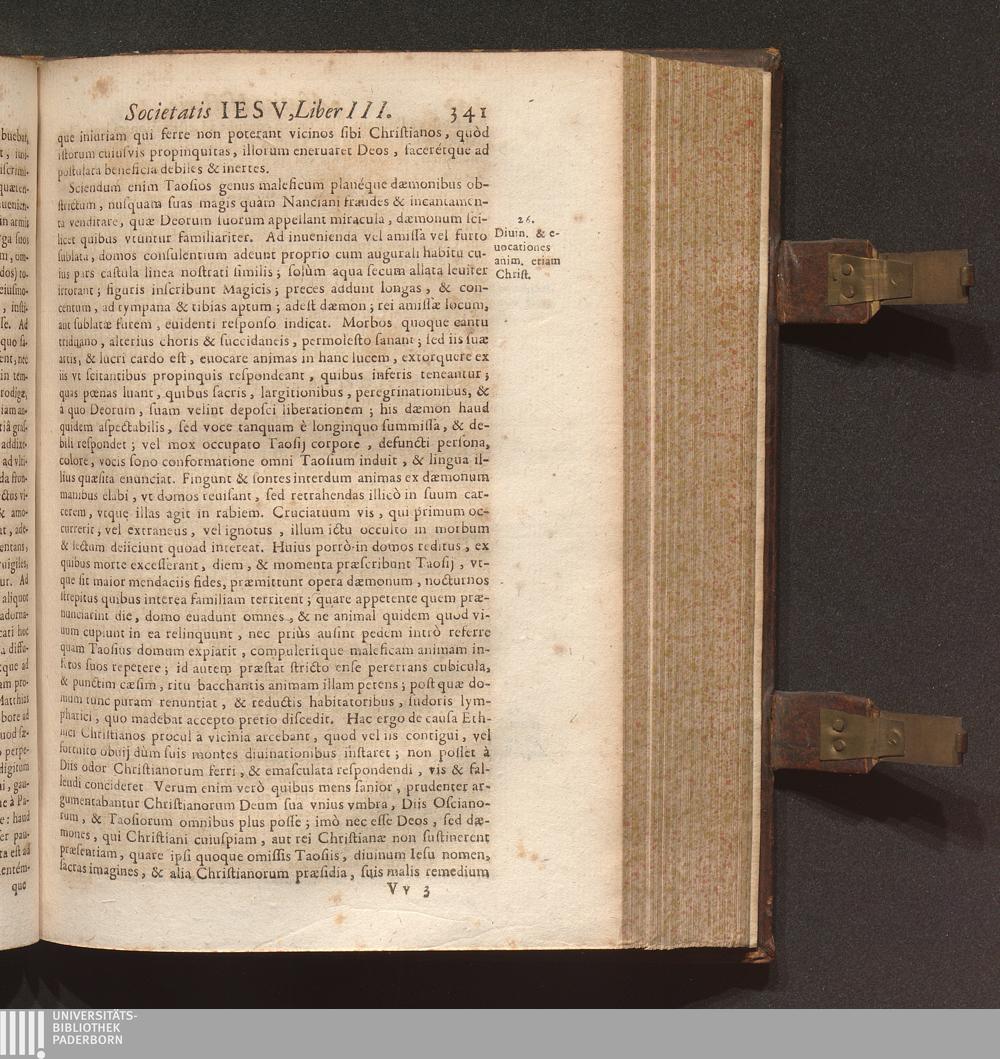 Societatis IESV, Liber III. 341
que iniuriam qui ferre non poterant vicinos sibi Christianos, quòd
istorum cuiusvis propinquitas, illorum eneruaret Deos, faceretque ad
postulata beneficia debiles & inertes.
Sciendum enim Taosios genus maleficum planéque dæmonibus ob-
strictum, nusquam suas magis quàm Nanciani fraudes & incantamen-
ta venditare, quæ Deorum suorum appellant miracula, dæmonum sci-
licet quibus vtuntur familiariter. Ad inuenienda vel amissa vel furto
sublata, domos consulentium adeunt proprio cum augurali habitu cu-
ius pars castula linea nostrati similis; solùm aqua secum allata leuiter
irrorant; figuris inscribunt Magicis; preces addunt longas, & con-
centum, ad tympana & tibias aptum; adest dæmon; rei amissæ locum,
aut sublatæ furem, euidenti responso indicat. Morbos quoque cantu
triduano, alterius choris & succidaneis, permolesto sanant; sed iis suæ
artis, & lucri cardo est, euocare animas in hanc lucem, extorquere ex
iis vt scitantibus propinquis respondeant, quibus inferis teneantur;
quas pœnas luant, quibus sacris, largitionibus, peregrinationibus, &
à quo Deorum, suam velint deposci liberationem; his dæmon haud
quidem aspectabilis, sed voce tanquam è longinquo summissa, & de-
bili respondet; vel mox occupato Taosij corpore, defuncti persona,
colore, vocis sono conformatione omni Taosium induit, & lingua il-
lius quæsita enunciat. Fingunt & sontes interdum animas ex dæmonum
manibus elabi, vt domos reuisant, sed retrahendas illicò in suum car-
cerem, vtque illas agit in rabiem. Cruciatuum vis, qui primum oc-
currerit, vel extraneus, vel ignotus, illum ictu occulto in morbum
& lectum deiiciunt quoad intereat. Huius porrò in domos reditus, ex
quibus morte excesserant, diem, & momenta præscribunt Taosij, vt-
que sit maior mendaciis fides, præmittunt opera dæmonum, nocturnos
strepitus quibus interea familiam territent; quare appetente quem præ-
nunciarint die, domo euadunt omnes, & ne animal quidem quod vi-
uum cupiunt in ea relinquunt, nec priùs ausint pedem intrò referre
quam Taosius domum expiarit, compuleritque maleficam animam in-
feros suos repetere; id autem præstat stricto ense pererrans cubicula,
& punctim cæsim, ritu bacchantis animam illam petens; post quæ do-
mum tunc puram renuntiat, & reductis habitatoribus, sudoris lym-
phatici, quo madebat accepto pretio discedit. Hac ergo de causa Eth-
nici Christianos procul à vicinia arcebant, quod vel iis contigui, vel
fortuito obuij dùm suis montes diuinationibus instaret; non posset à
Diis odor Christianorum ferri, & emasculata respondendi, vis & fal-
lendi concideret Verum enim verò quibus mens sanior, prudenter ar-
gumentabantur Christianorum Deum sua vnius vmbra, Diis Osciano-
rum, & Taosiorum omnibus plus posse; imò nec esse Deos, sed dæ-
mones, qui Christiani cuiuspiam, aut rei Christianæ non sustinerent
præsentiam, quare ipsi quoque omissis Taosiis, diuinum Iesu nomen,
sacras imagines, & alia Christianorum præsidia, suis malis remedium
Vv 3
26.
Diuin. & e-
uocationes
anim. etiam
Christ.
UNIVERSITÄTS-
BIBLIOTHEK
PADERBORN